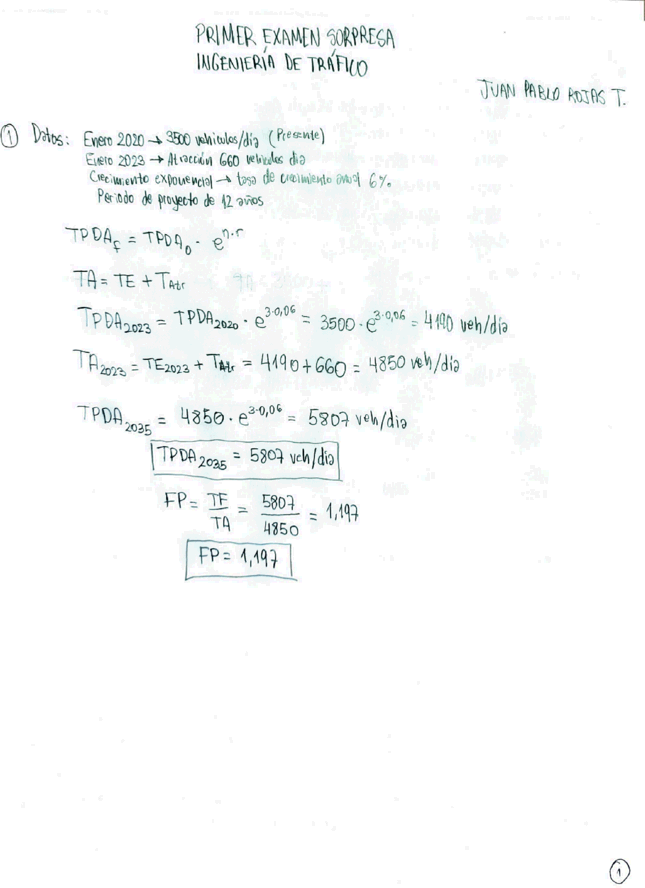 PRIMER EXAMEN SORPRESA
INGENIERÍA DE TRÁFICO
JUAN PABLO ROJAS T.
① Datos: Enero 2020 → 3500 vehiculos/día (Presente)
Enero 2023 → Atracción 660 vehiculos dia
Crecimiento exponencial → tasa de crecimiento anual 6%
Periodo de proyecto de 12 años
TPDA_f = TPDA_0 · e^{n·r}
TA = TE + T_Atr
TPDA_2023 = TPDA_2020 · e^{3·0,06} = 3500 · e^{3·0,06} = 4190 veh/día
TA_2023 = TE_2023 + T_Atr = 4190 + 660 = 4850 veh/día
TPDA_2035 = 4850 · e^{3·0,06} = 5807 veh/dia
TPDA_2035 = 5807 veh/dia
FP = TF/TA = 5807/4850 = 1,197
FP = 1,197
①